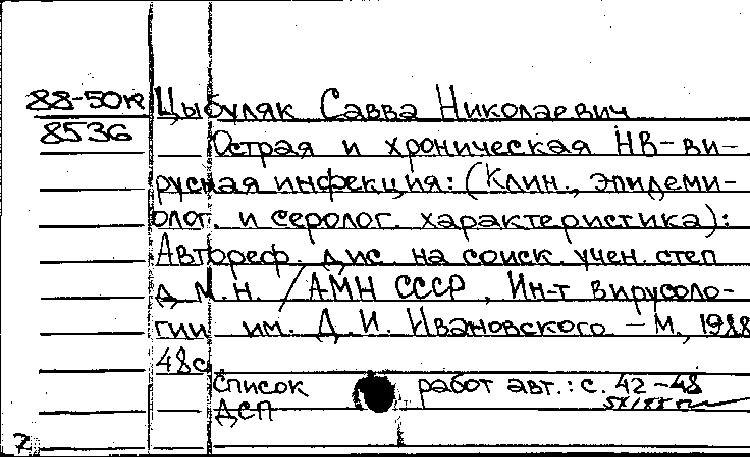 88-50к Цыбуляк Савва Николаевич
8536 Острая и хроническая НВ-ви-
русная инфекция: (Клин., эпидеми-
олог. и серолог. характеристика):
Автореф. дис. на соиск. учен. степ
д. м. н. / АМН СССР, Ин-т вирусоло-
гии им. Д. И. Ивановского – М., 1988
48с
Список работ авт.: с. 42-48
ДСП